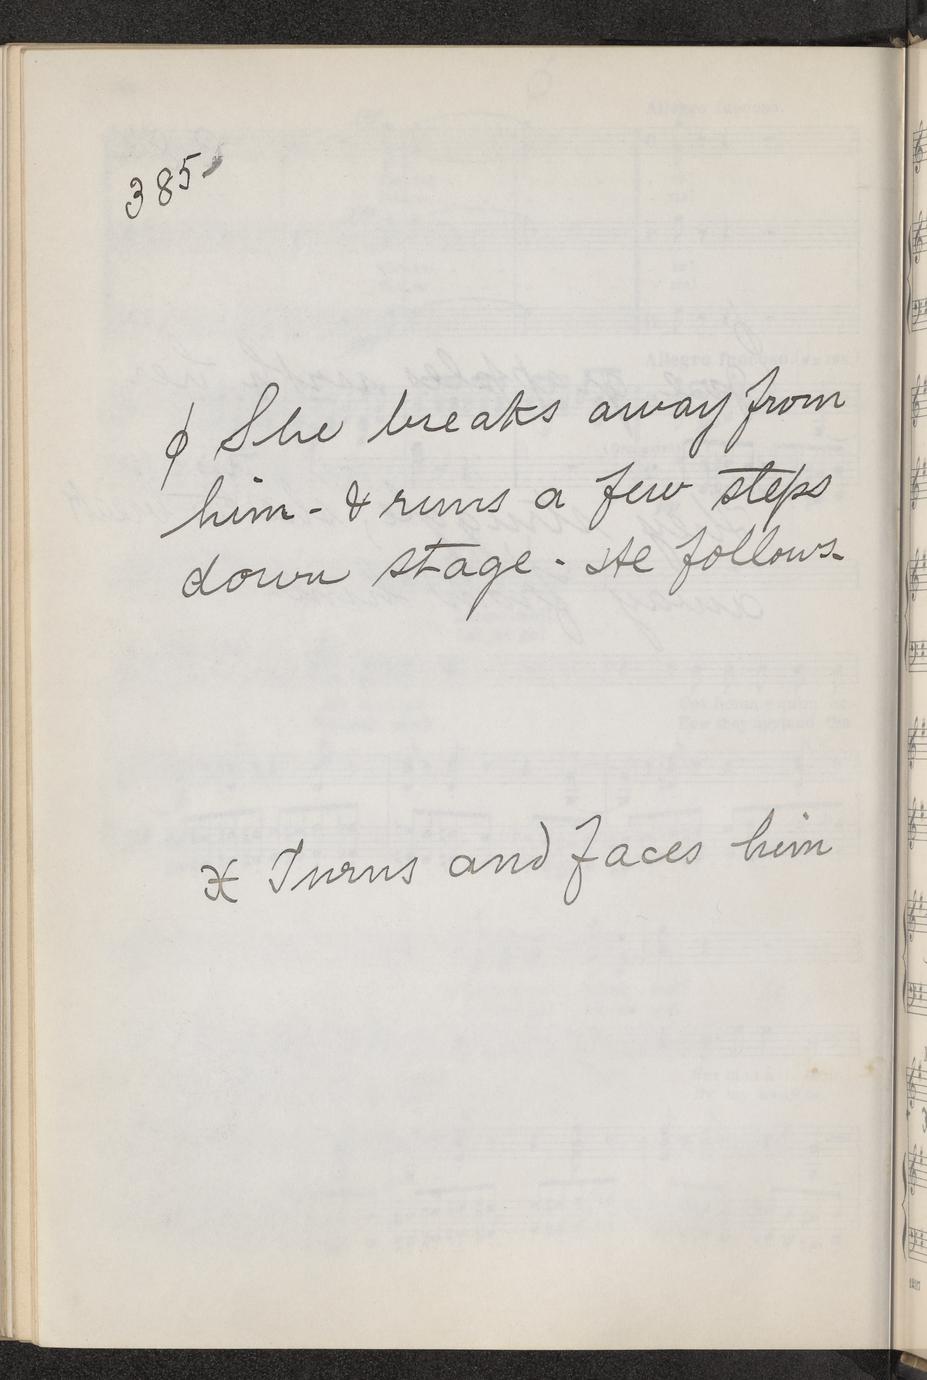 385
ϕ She breaks away from
him - & runs a few steps
down stage - He follows -
X Turns and faces him